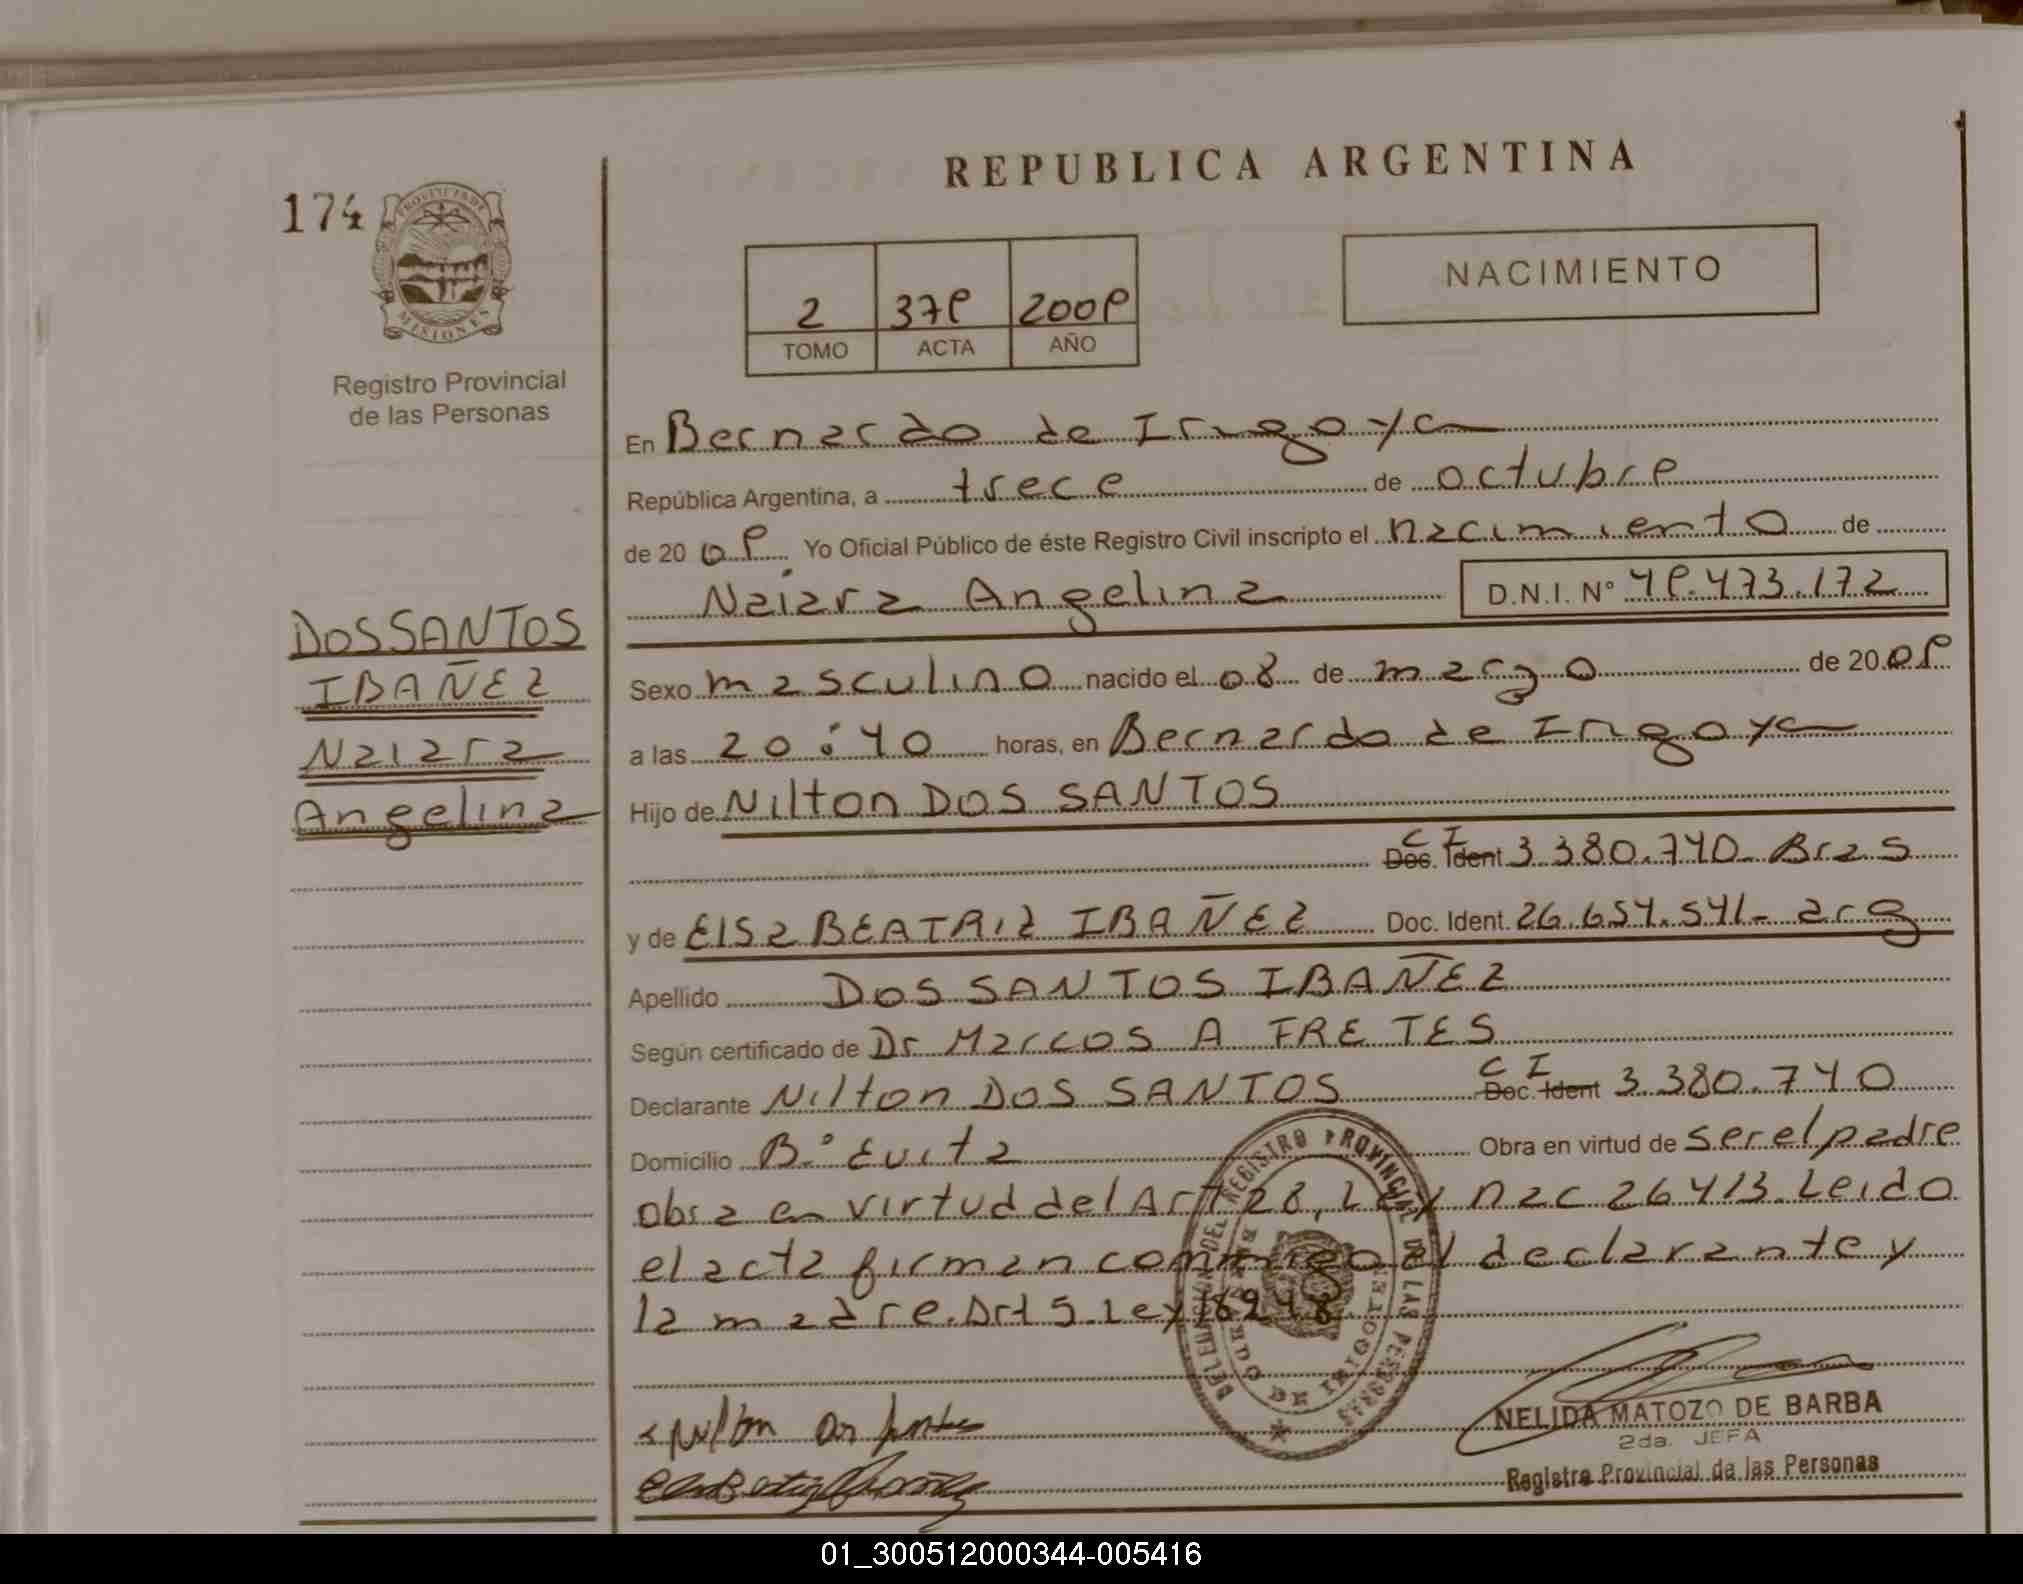 REPUBLICA ARGENTINA
174
PROVINCIA DE
MISIONES
Registro Provincial
de las Personas
2 379 2009
TOMO ACTA AÑO
NACIMIENTO
En Bernardo de Irigoyen
República Argentina, a trece de octubre
de 20 09 Yo Oficial Público de éste Registro Civil inscripto el nacimiento de
Naiara Angelina D.N.I. Nº 49.473.172
DOS SANTOS
IBAÑEZ
Naiara
Angelina
Sexo masculino nacido el 08 de marzo de 20 09
a las 20:40 horas, en Bernardo de Irigoyen
Hijo de Nilton DOS SANTOS
CI
Doc. Ident 3.380.740 Bras
y de Elsa BEATRIZ IBAÑEZ Doc. Ident. 26.654.541- arg
Apellido DOS SANTOS IBAÑEZ
Según certificado de Dr Marcos A FRETES
CI
Declarante Nilton DOS SANTOS Doc. Ident 3.380.740
Domicilio Bº Evita Obra en virtud de ser el padre
obra en virtud del Art 28, Ley nac 26413. Leido
el acta firman conmigo el declarante y
la madre. Art 5. Ley 18248.
DELEGACION DEL REGISTRO PROVINCIAL DE LAS PERSONAS
BERNARDO DE IRIGOYEN
Nilton dos santos
NELIDA MATOZO DE BARBA
2da. JEFA
Registro Provincial de las Personas
01_300512000344-005416